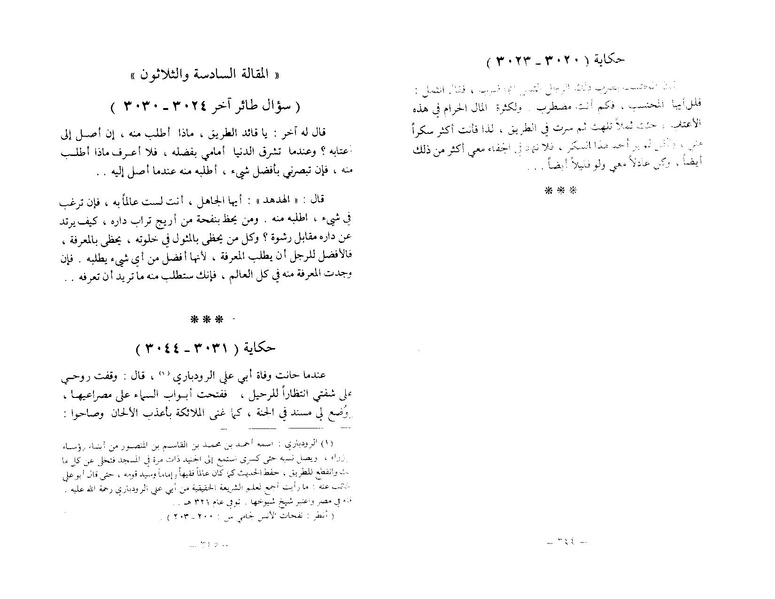 حكاية ( ٣٠٢٠ – ٣٠٢٣ )
المحتسب يضرب ذلك الرجل الثمل ، فقال الثمل :
قلل أيها المحتسب ، فكم أنت مضطرب . ولكثرة المال الحرام في هذه
جئت ثملاً تلهث ثم سرت في الطريق ، لذا فأنت أكثر سكراً
مني ، ولكن لم ير أحد هذا السكر ، فلا تتمادَ في الجفاء معي أكثر من ذلك
أيضاً ، وكن عادلاً معي ولو قليلاً أيضاً ...
***
– ٣٤٤ –
« المقالة السادسة والثلاثون »
( سؤال طائر آخر ٣٠٢٤ – ٣٠٣٠ )
قال له آخر : يا قائد الطريق ، ماذا أطلب منه ، إن أصل إلى
أعتابه ؟ وعندما تشرق الدنيا أمامي بفضله ، فلا أعرف ماذا أطلب
منه ، فإن تبصرني بأفضل شيء ، أطلبه منه عندما أصل إليه ..
قال : « الهدهد » : أيها الجاهل ، أنت لست عالماً به ، فإن ترغب
في شيء ، اطلبه منه . ومن يحظ بنفحة من أريج تراب داره ، كيف يرتد
عن داره مقابل رشوة ؟ وكل من يحظى بالمثول في خلوته ، يحظى بالمعرفة ،
فالأفضل للرجل أن يطلب المعرفة ، لأنها أفضل من أي شيء يطلبه . فإن
وجدت المعرفة منه في كل العالم ، فإنك ستطلب منه ما تريد أن تعرفه ..
***
حكاية ( ٣٠٣١ – ٣٠٤٤ )
عندما حانت وفاة أبي علي الرودباري (١) ، قال : وقفت روحي
على شفتي انتظاراً للرحيل ، ففتحت أبواب السماء على مصراعيها ،
ووُضع لي مسند في الجنة ، كما غنى الملائكة بأعذب الألحان وصاحوا :
(١) الرودباري : اسمه أحمد بن محمد بن القاسم بن المنصور من أبناء رؤساء
ويصل نسبه حتى كسرى استمع إلى الجنيد ذات مرة في المسجد فتخلى عن كل ما
وانقطع للطريق ، حفظ الحديث كما كان عالماً فقيهاً وإماماً وسيد قومه ، حتى قال أبو علي
عنه : ما رأيت أجمع لعلم الشريعة الحقيقية من أبي علي الرودباري رحمة الله عليه .
في مصر واعتبر شيخ شيوخها . توفي عام ٣٢١ هـ ..
( أنظر : نفحات الأنس لجامي ص : ٢٠٠ – ٢٠٣ ) .
– ٣٤٥ –